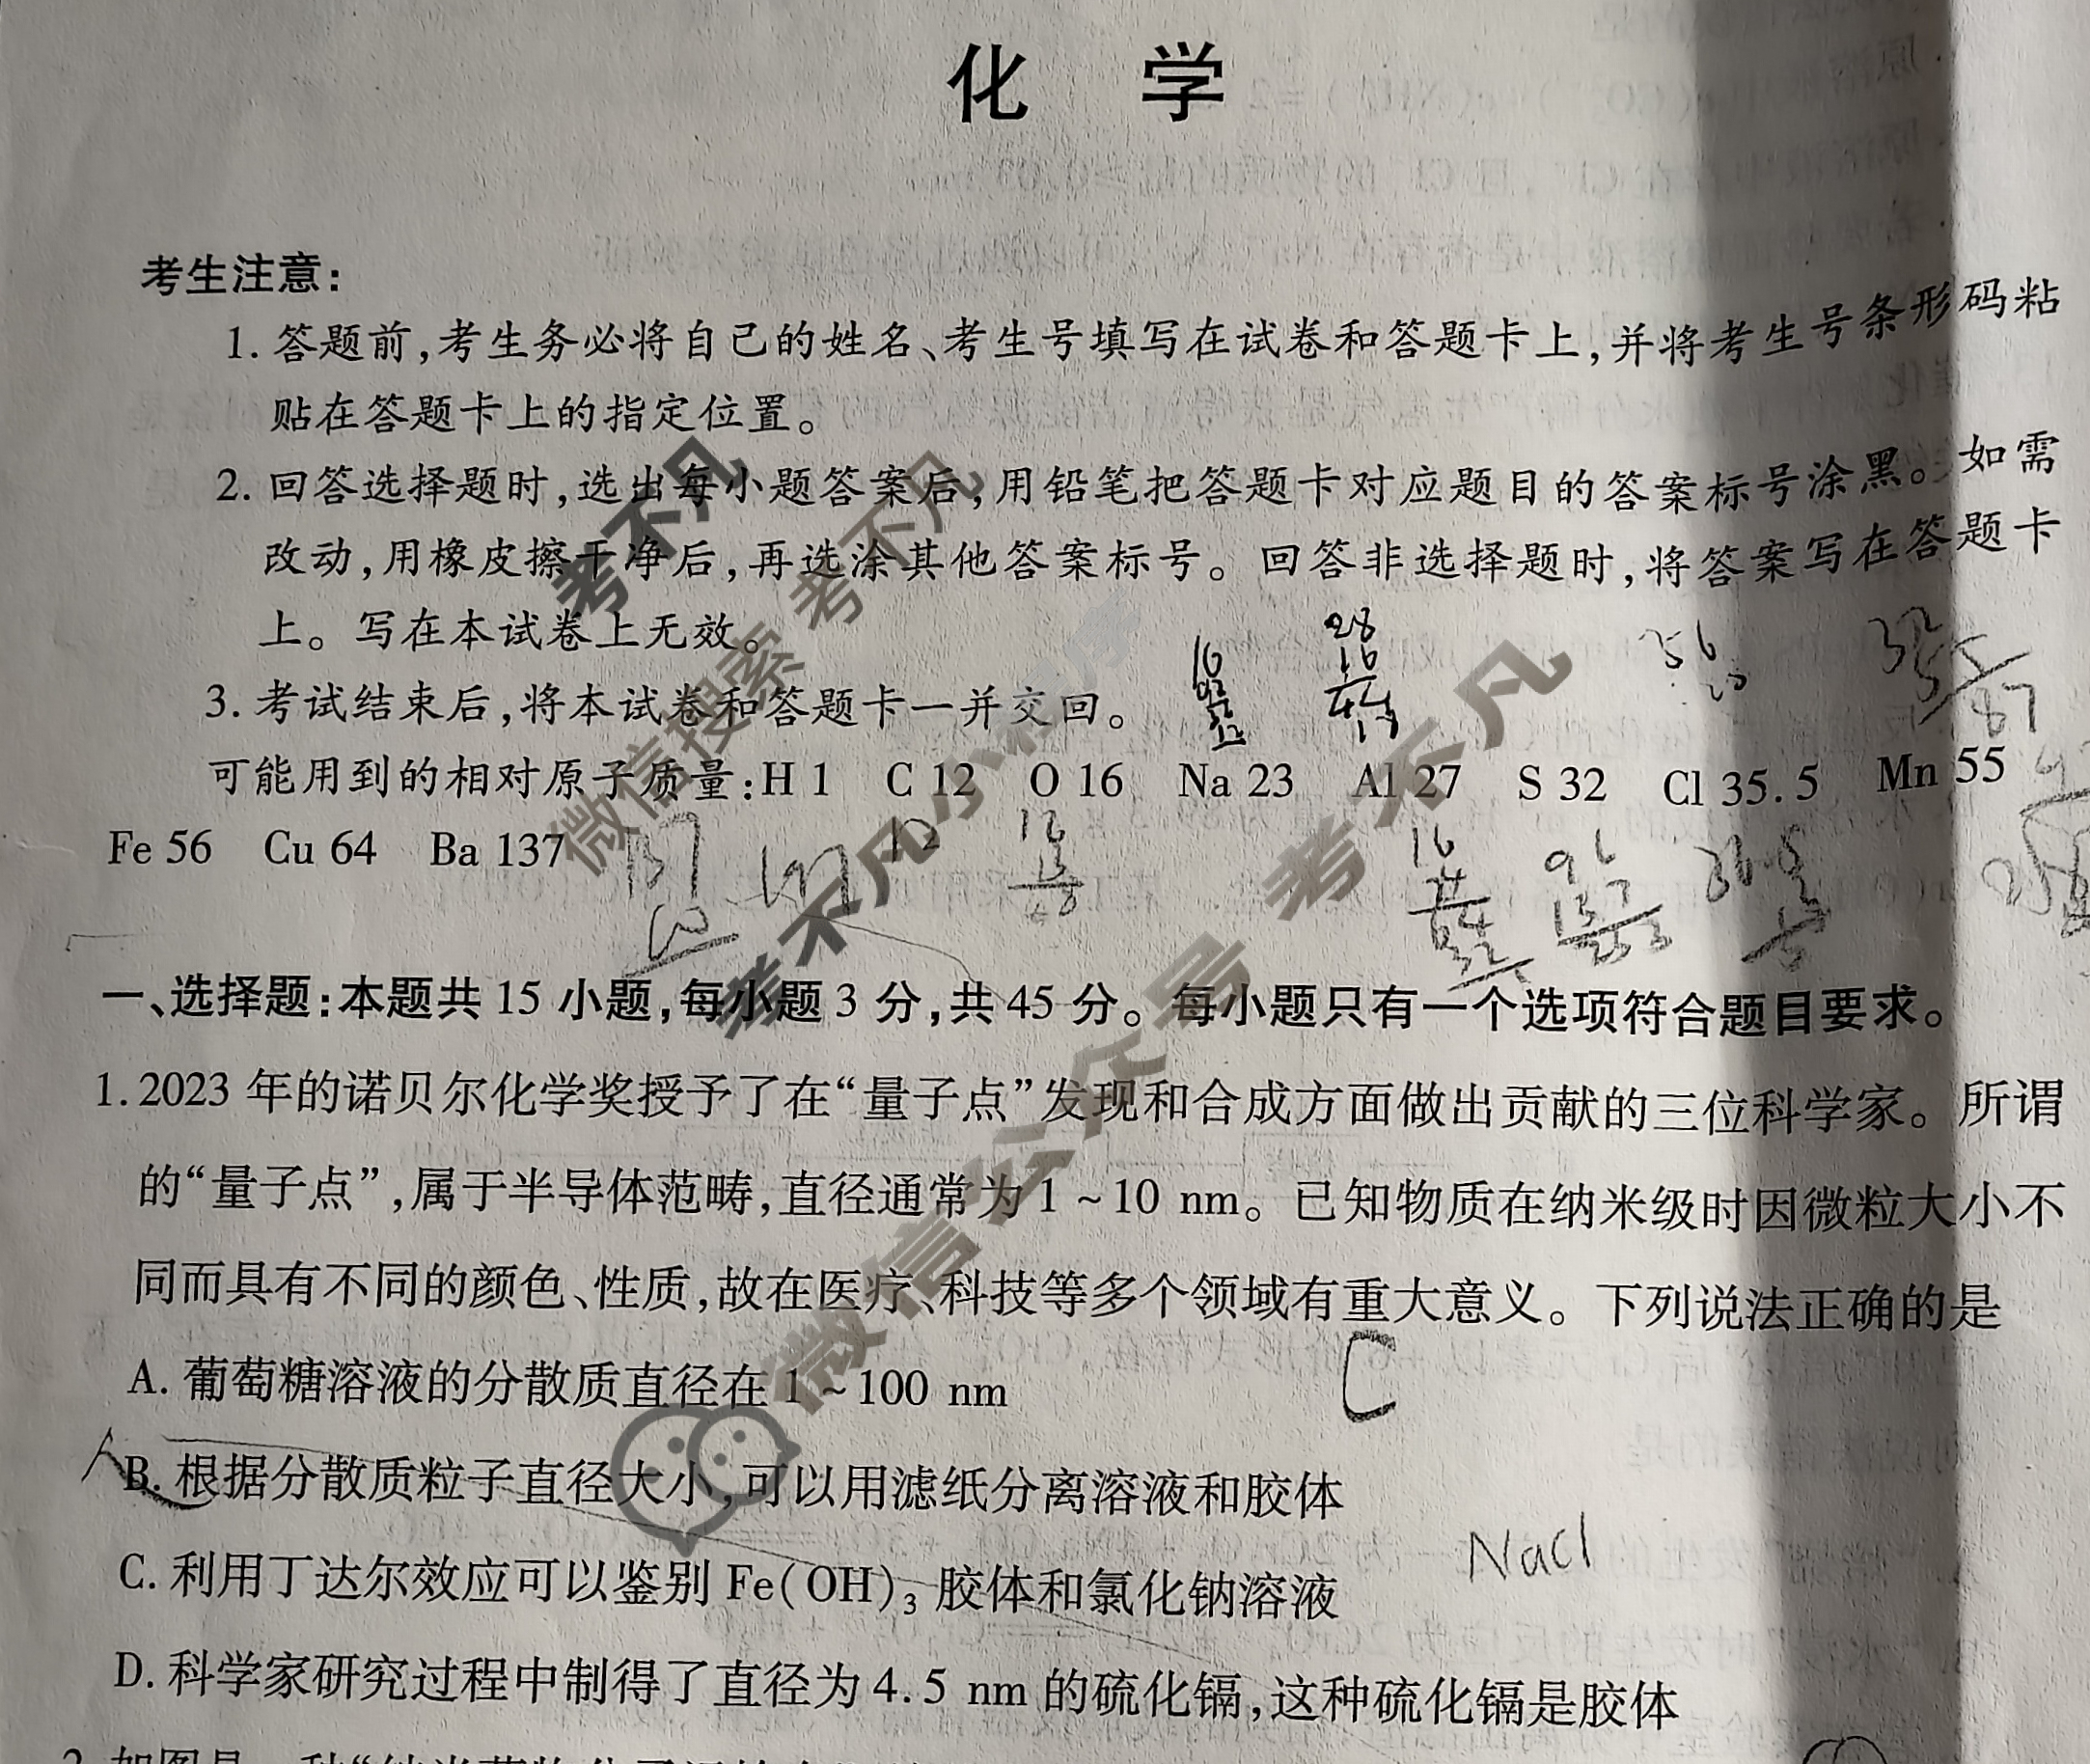 化 学
考生注意：
1. 答题前,考生务必将自己的姓名、考生号填写在试卷和答题卡上,并将考生号条形码粘
贴在答题卡上的指定位置。
2. 回答选择题时,选出每小题答案后,用铅笔把答题卡对应题目的答案标号涂黑。如需
改动,用橡皮擦干净后,再选涂其他答案标号。回答非选择题时,将答案写在答题卡
上。写在本试卷上无效。
3. 考试结束后,将本试卷和答题卡一并交回。
可能用到的相对原子质量:H 1 C 12 O 16 Na 23 Al 27 S 32 Cl 35.5 Mn 55
Fe 56 Cu 64 Ba 137
一、选择题:本题共 15 小题,每小题 3 分,共 45 分。每小题只有一个选项符合题目要求。
1. 2023 年的诺贝尔化学奖授予了在“量子点”发现和合成方面做出贡献的三位科学家。所谓
的“量子点”,属于半导体范畴,直径通常为 1 ~ 10 nm。已知物质在纳米级时因微粒大小不
同而具有不同的颜色、性质,故在医疗、科技等多个领域有重大意义。下列说法正确的是
C
A. 葡萄糖溶液的分散质直径在 1 ~ 100 nm
B. 根据分散质粒子直径大小,可以用滤纸分离溶液和胶体
NaCl
C. 利用丁达尔效应可以鉴别 Fe(OH)₃ 胶体和氯化钠溶液
D. 科学家研究过程中制得了直径为 4.5 nm 的硫化镉,这种硫化镉是胶体
考不凡
微信搜索 考不凡
考不凡小程序
微信公众号 考不凡